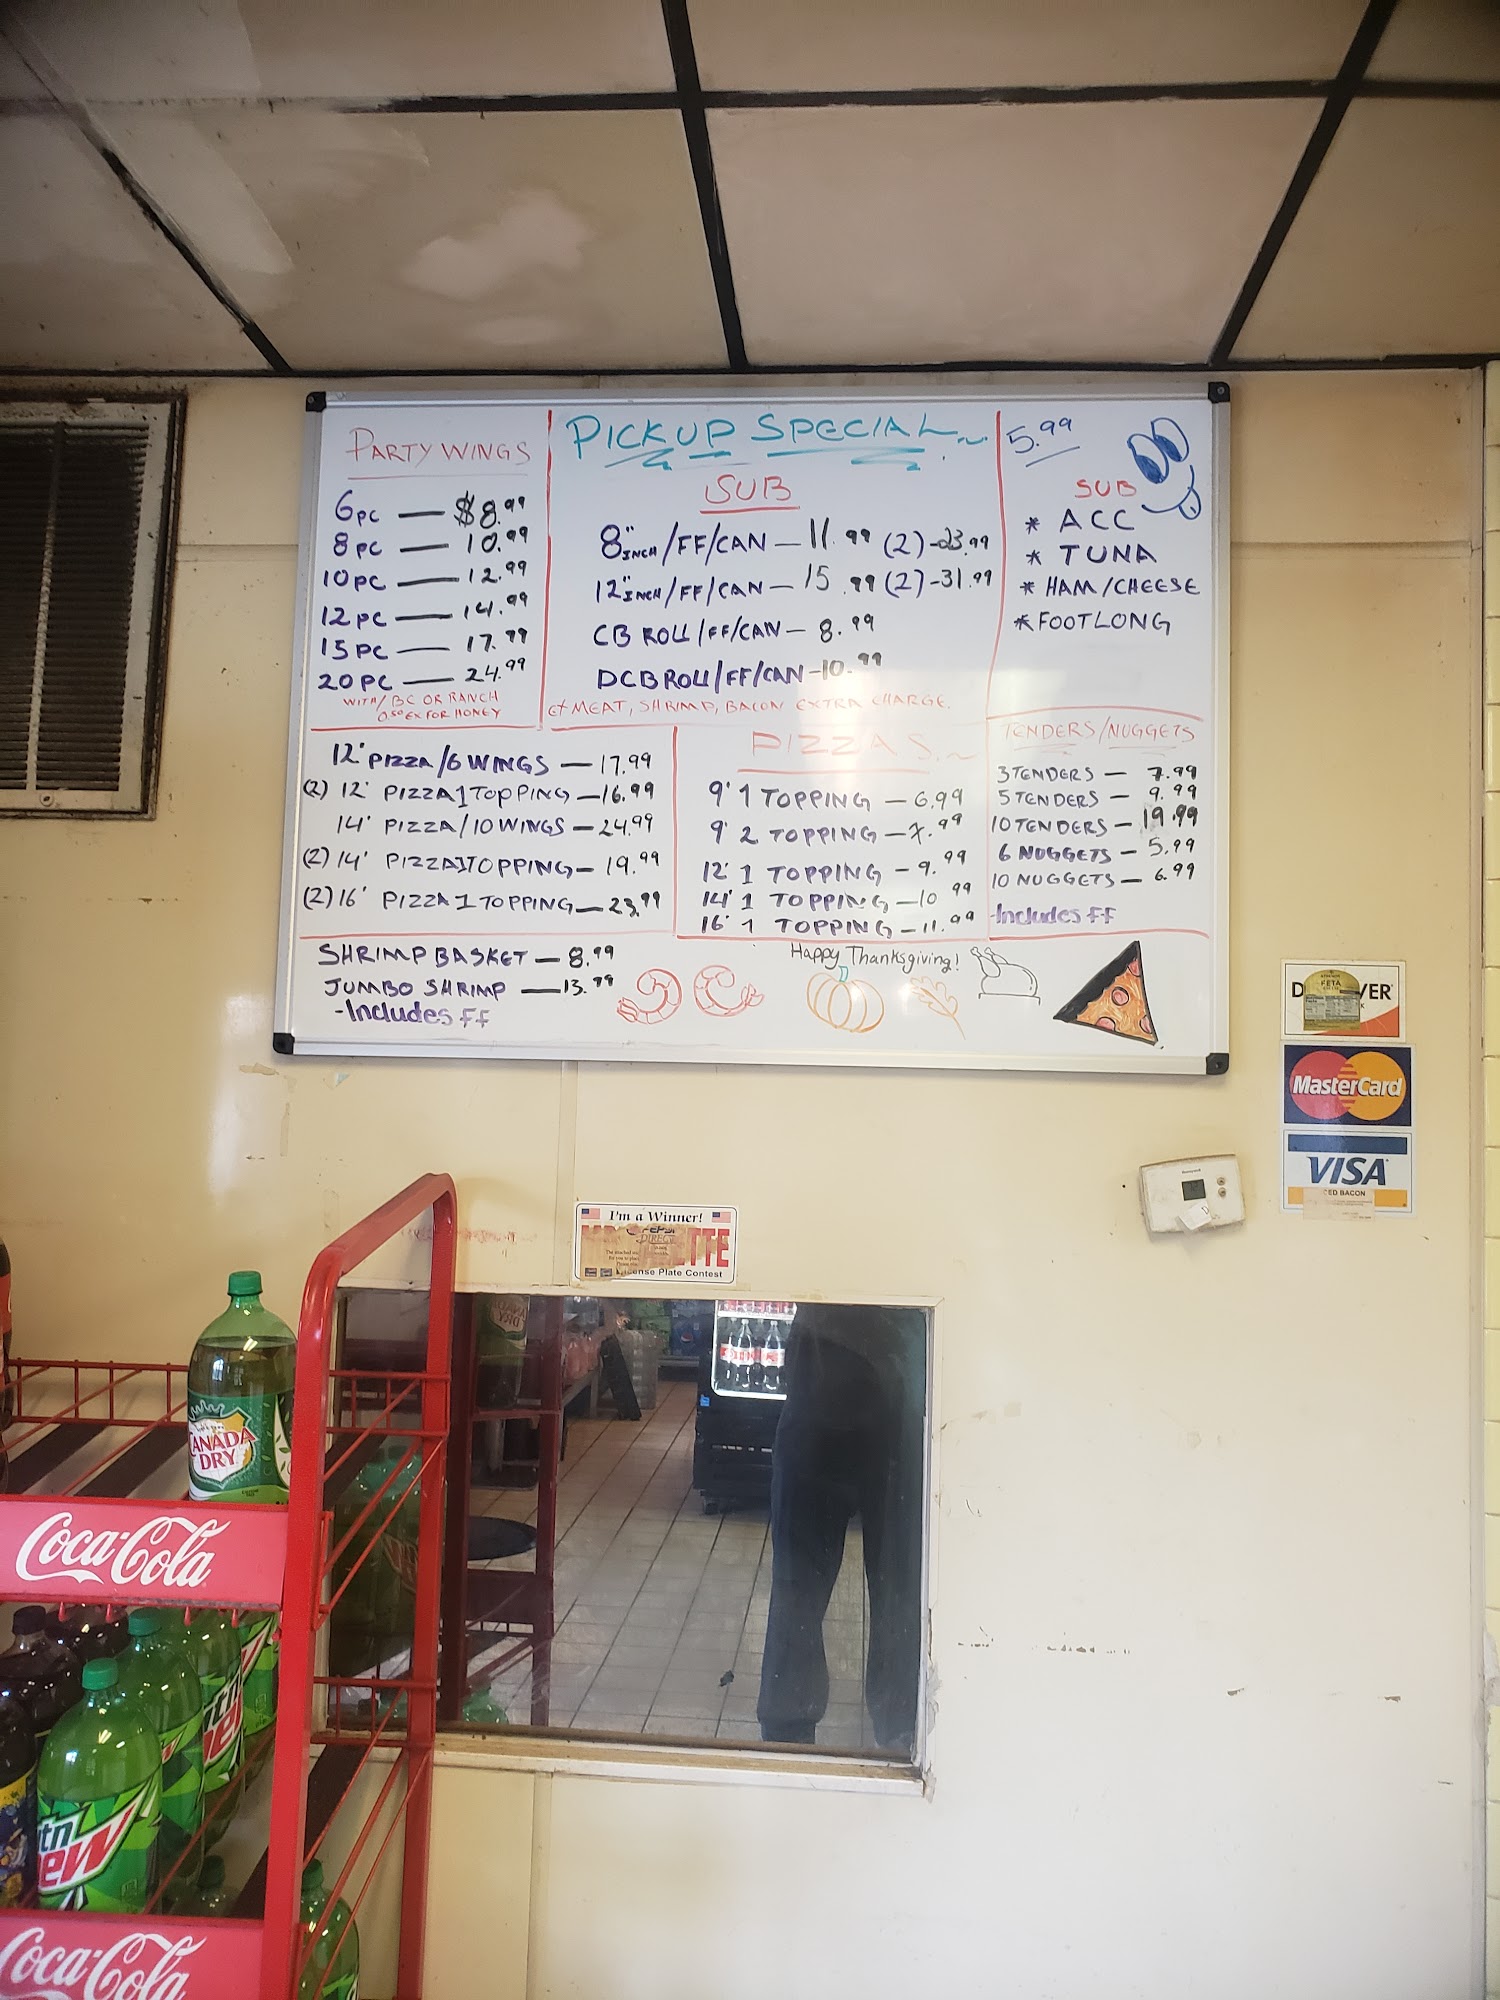 PARTY WINGS
6pc — $8.99
8pc — 10.99
10pc — 12.99
12pc — 14.99
15pc — 17.99
20pc — 24.99
WITH/BC OR RANCH
0.50 EX FOR HONEY
PICKUP SPECIAL
SUB
8" INCH/FF/CAN — 11.99 (2) -23.99
12" INCH/FF/CAN — 15.99 (2) -31.99
CB ROLL/FF/CAN — 8.99
DCB ROLL/FF/CAN -10.99
EX MEAT, SHRIMP, BACON EXTRA CHARGE.
5.99
SUB
* ACC
* TUNA
* HAM/CHEESE
* FOOTLONG
12" PIZZA/6 WINGS — 17.99
(2) 12' PIZZA 1 TOPPING — 16.99
14' PIZZA/10 WINGS — 24.99
(2) 14' PIZZA 1 TOPPING — 19.99
(2) 16' PIZZA 1 TOPPING — 23.99
PIZZAS
9' 1 TOPPING — 6.99
9' 2 TOPPING — 7.99
12' 1 TOPPING — 9.99
14' 1 TOPPING — 10.99
16' 1 TOPPING — 11.99
TENDERS/NUGGETS
3 TENDERS — 7.99
5 TENDERS — 9.99
10 TENDERS — 19.99
6 NUGGETS — 5.99
10 NUGGETS — 6.99
-Includes FF
SHRIMP BASKET — 8.99
JUMBO SHRIMP — 13.99
-Includes FF
Happy Thanksgiving!
D VER
FETA
MasterCard
VISA
ED BACON
Honeywell
I'm a Winner!
DIRECT
TTE
License Plate Contest
CANADA
DRY
Coca-Cola
mtn
Dew
Coca-Cola